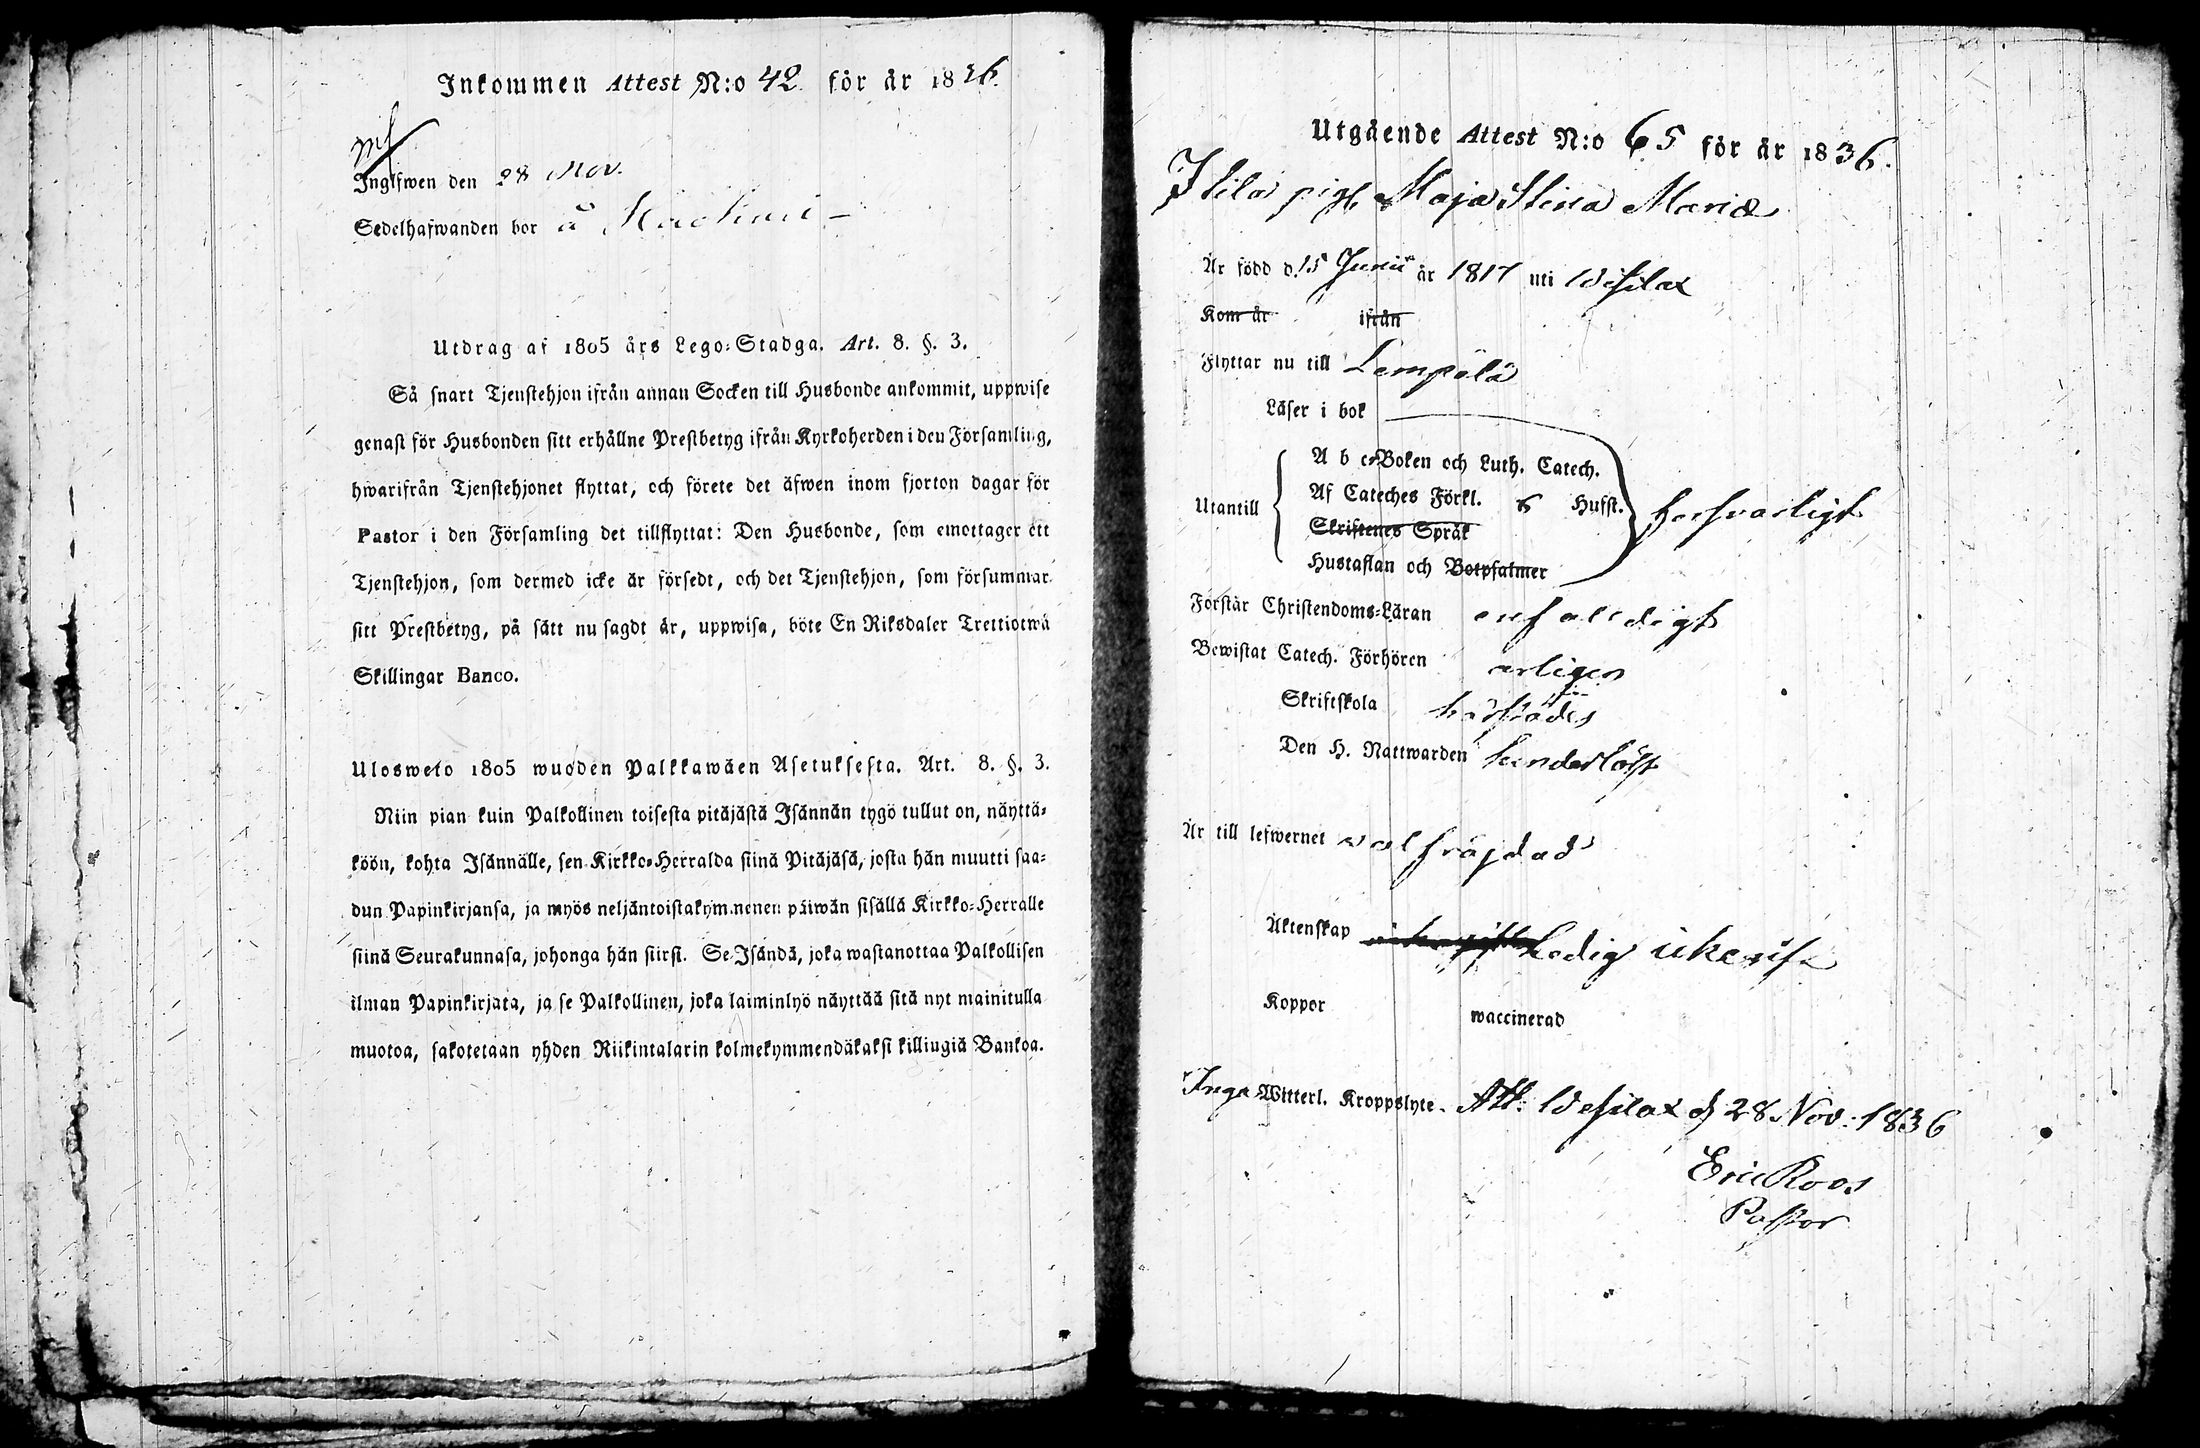 Inkommen Attest N:o 42 för år 1836.
Ingifwen den 28 Nov.
Sedelhafwanden bor å
Utdrag af 1805 års Lego-Stadga. Art. 8. §. 3.
Så snart Tjenstehjon ifrån annan Socken till Husbonde ankommit, uppwise
genast för Husbonden sitt erhållne Prestbetyg ifrån Kyrkoherden i den Församling,
hwarifrån Tjenstehjonet flyttat, och förete det äfwen inom fjorton dagar för
Pastor i den Församling det tillflyttat: Den Husbonde, som emottager ett
Tjenstehjon, som dermed icke är försedt, och det Tjenstehjon, som försummar
sitt Prestbetyg, på sätt nu sagdt är, uppwisa, böte En Riksdaler Trettiotwå
Skillingar Banco.
Ulosweto 1805 wuoden Palkkawäen Asetuksesta. Art. 8. §. 3.
Niin pian kuin Palkollinen toisesta pitäjästä Isännän tygö tullut on, näyttä-
köön, kohta Isännälle, sen Kirkko-Herralda siinä Pitäjäsä, josta hän muutti saa-
dun Papinkirjansa, ja myös neljäntoistakymmenen päiwän sisällä Kirkko-Herralle
siinä Seurakunnasa, johonga hän siirsi. Se Isändä, joka wastanottaa Palkollisen
ilman Papinkirjata, ja se Palkollinen, joka laiminlyö näyttää sitä nyt mainitulla
muotoa, sakotetaan yhden Riikintalarin kolmekymmendäkaksi killingiä Bankoa.
Utgående Attest N:o 65 för år 1836.
pig. Maja Stina
Är född d. 15 Junii år 1817 uti Wesilax
Kom år ifrån
Flyttar nu till Lempälä
Läser i bok
A b c-Boken och Luth. Catech.
Af Cateches Förkl. 6 Hufst.
Utantill försvarligt
Skriftenes Språk
Hustaflan och Botpsalmer
Förstår Christendoms-Läran enfaldigt
Bewistat Catech. Förhören årligen
Skriftskola härstädes
Den H. Nattwarden hinderlöst
Är till lefwernet välfräjdad
Äktenskap Ledig
Koppor waccinerad
Inga Witterl. Kroppslyte. Att. Wesilax d. 28 Nov. 1836
Eric Roos
Pastor